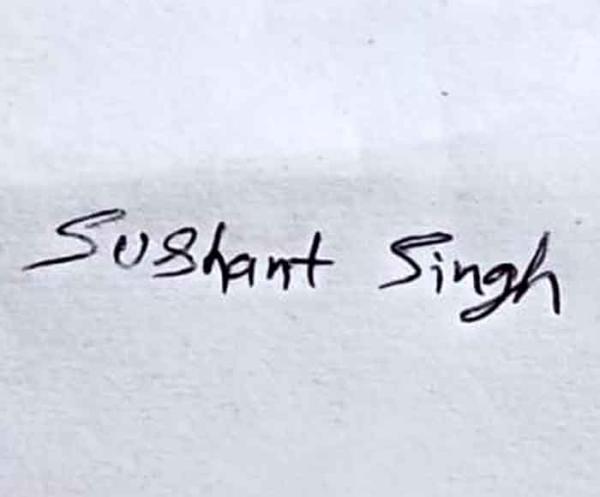 Sushant Singh